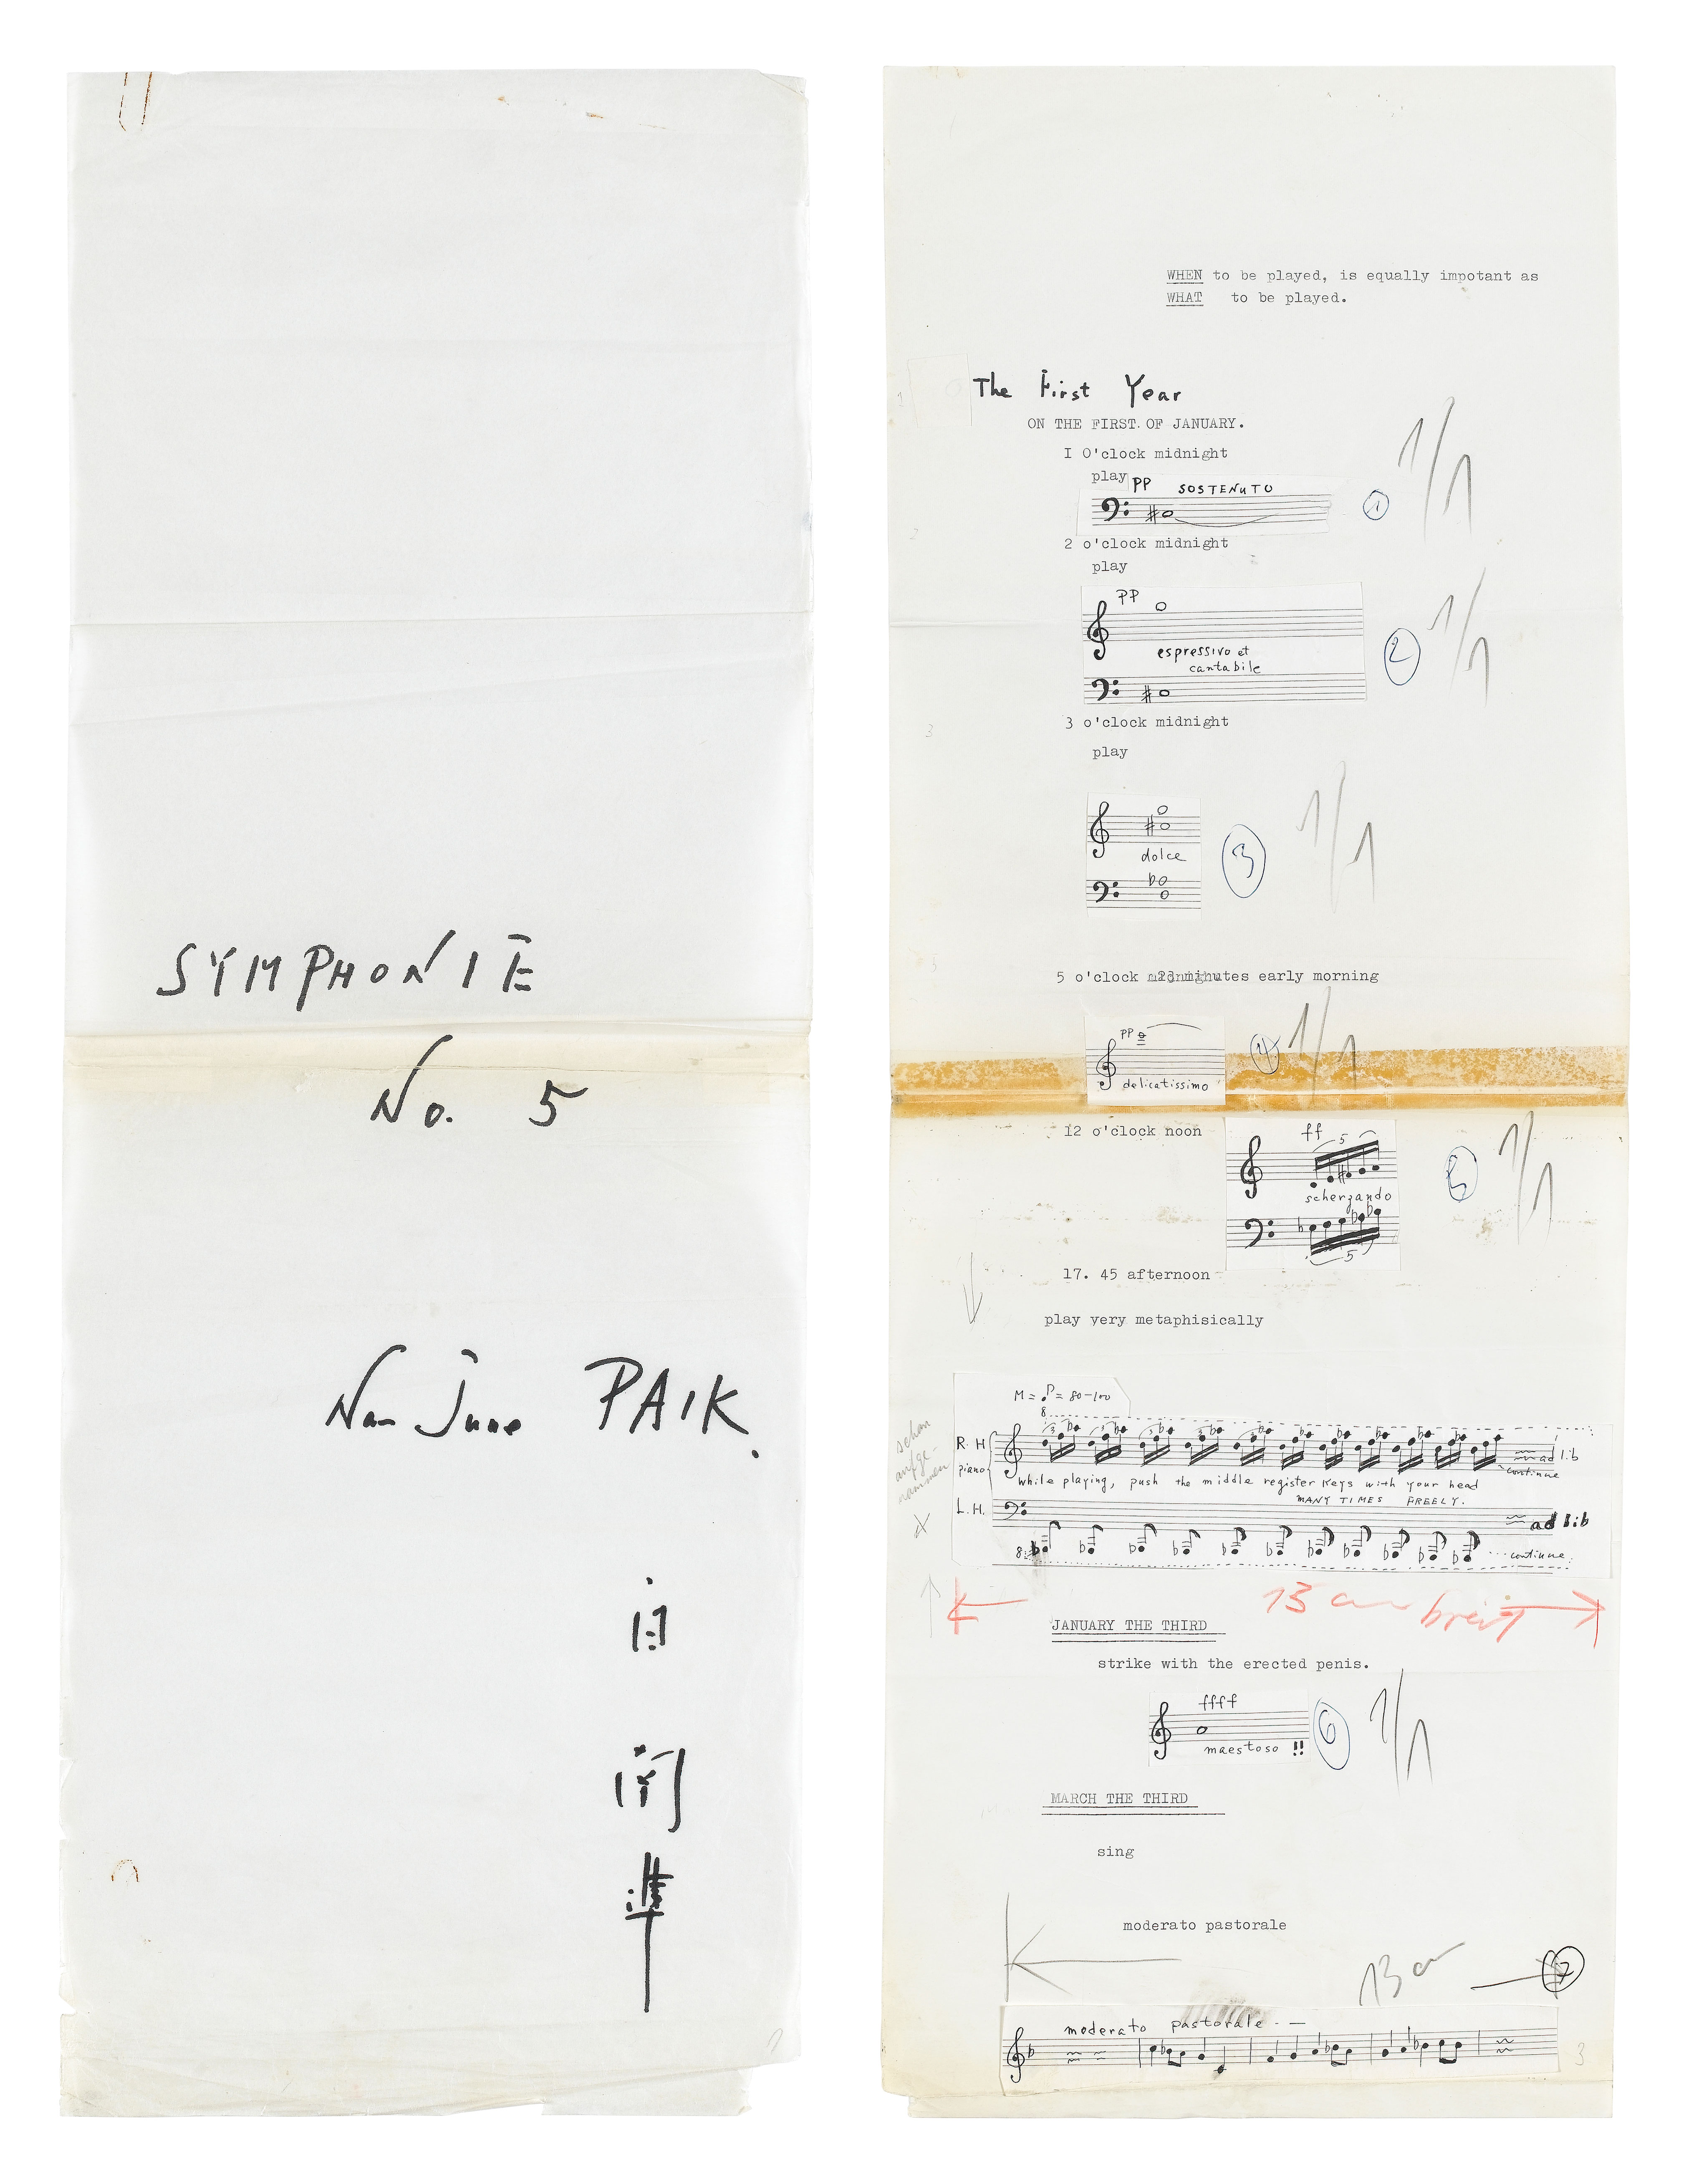 SYMPHONIE
No. 5
Nam June PAIK.
白
南
準
WHEN to be played, is equally impotant as
WHAT to be played.
The First Year
ON THE FIRST. OF JANUARY.
I O'clock midnight
play
PP SOSTENUTO
1
1/1
2 o'clock midnight
play
PP
espressivo et
cantabile
2
1/1
3 o'clock midnight
play
dolce
3
1/1
5 o'clock minutes early morning
PP
delicatissimo
4
1/1
12 o'clock noon
ff
5
scherzando
5
5
1/1
17. 45 afternoon
play very metaphisically
M = = 80-100
8
R. H
piano
ad lib
continue
while playing, push the middle register keys with your head
MANY TIMES FREELY.
L. H.
ad lib
8
continue
schon
aufge-
nommen
13 cm breit
JANUARY THE THIRD
strike with the erected penis.
ffff
maestoso !!
6
1/1
MARCH THE THIRD
sing
moderato pastorale
13 cm
7
moderato pastorale
3